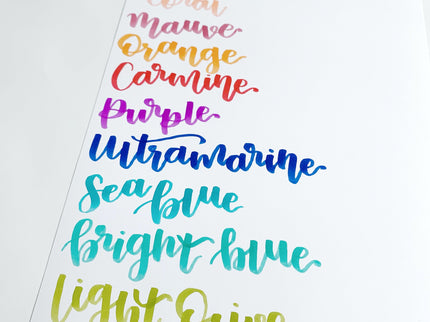 Coral
Mauve
Orange
Carmine
Purple
Ultramarine
Sea blue
bright blue
Light Olive